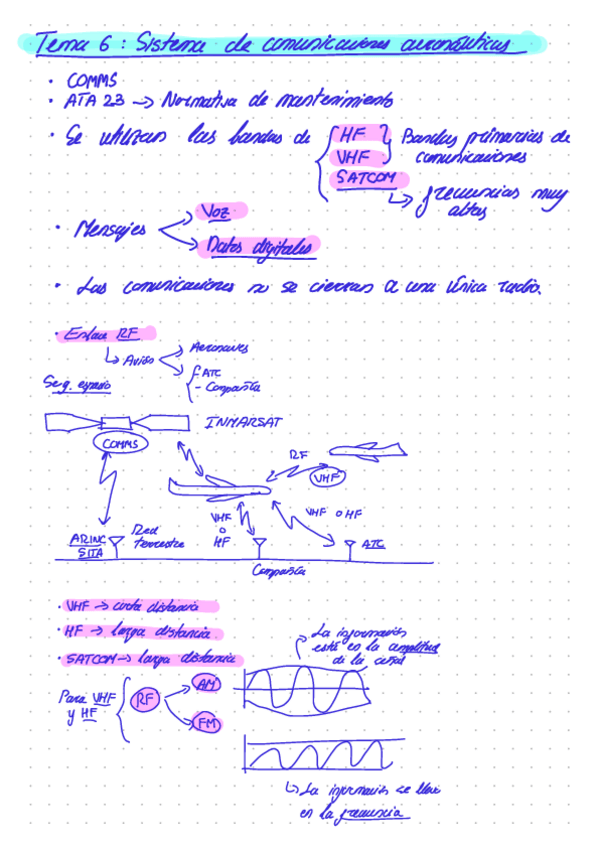 Tema 6: Sistema de comunicaciones aeronáuticas
· COMMS
· ATA 23 → Normativa de mantenimiento
· Se utilizan las bandas de { HF } Bandas primarias de
VHF comunicaciones
SATCOM
↳ frecuencias muy altas
· Mensajes
Voz
Datos digitales
· Las comunicaciones no se cierran a una única radio.
· Enlace RF
↳ Avión
Aeronaves
ATC
- Compañía
Seg. espacio
INMARSAT
COMMS
RF
VHF
VHF o HF
VHF
o
HF
ARINC
SITA
Red
terrestre
ATC
Compañía
· VHF → corta distancia
· HF → larga distancia
· SATCOM → larga distancia
Para VHF
y HF
RF
AM
FM
La información
está en la amplitud
de la señal
↳ La información se lleva
en la frecuencia